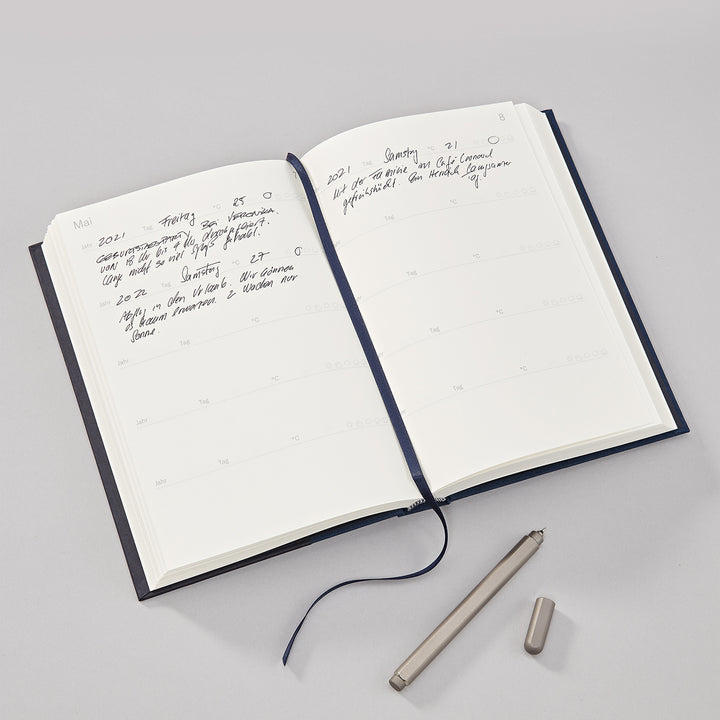 Mai
Jahr 2021 Tag Freitag °C 25
GEBURTSTAGSPARTY BEI VERONIKA.
VON 18 Uhr bis 4 Uhr durchgefeiert.
Lange nicht so viel Spaß gehabt.
Jahr 2022 Tag Samstag °C 27
Abflug in den Urlaub. Wir können
es kaum erwarten. 2 Wochen nur
Sonne.
Jahr Tag °C
Jahr Tag °C
Jahr Tag °C
8
2021 Tag Samstag °C 21
Mit der Familie im Café
gefrühstückt. Ein Herrlich langsamer